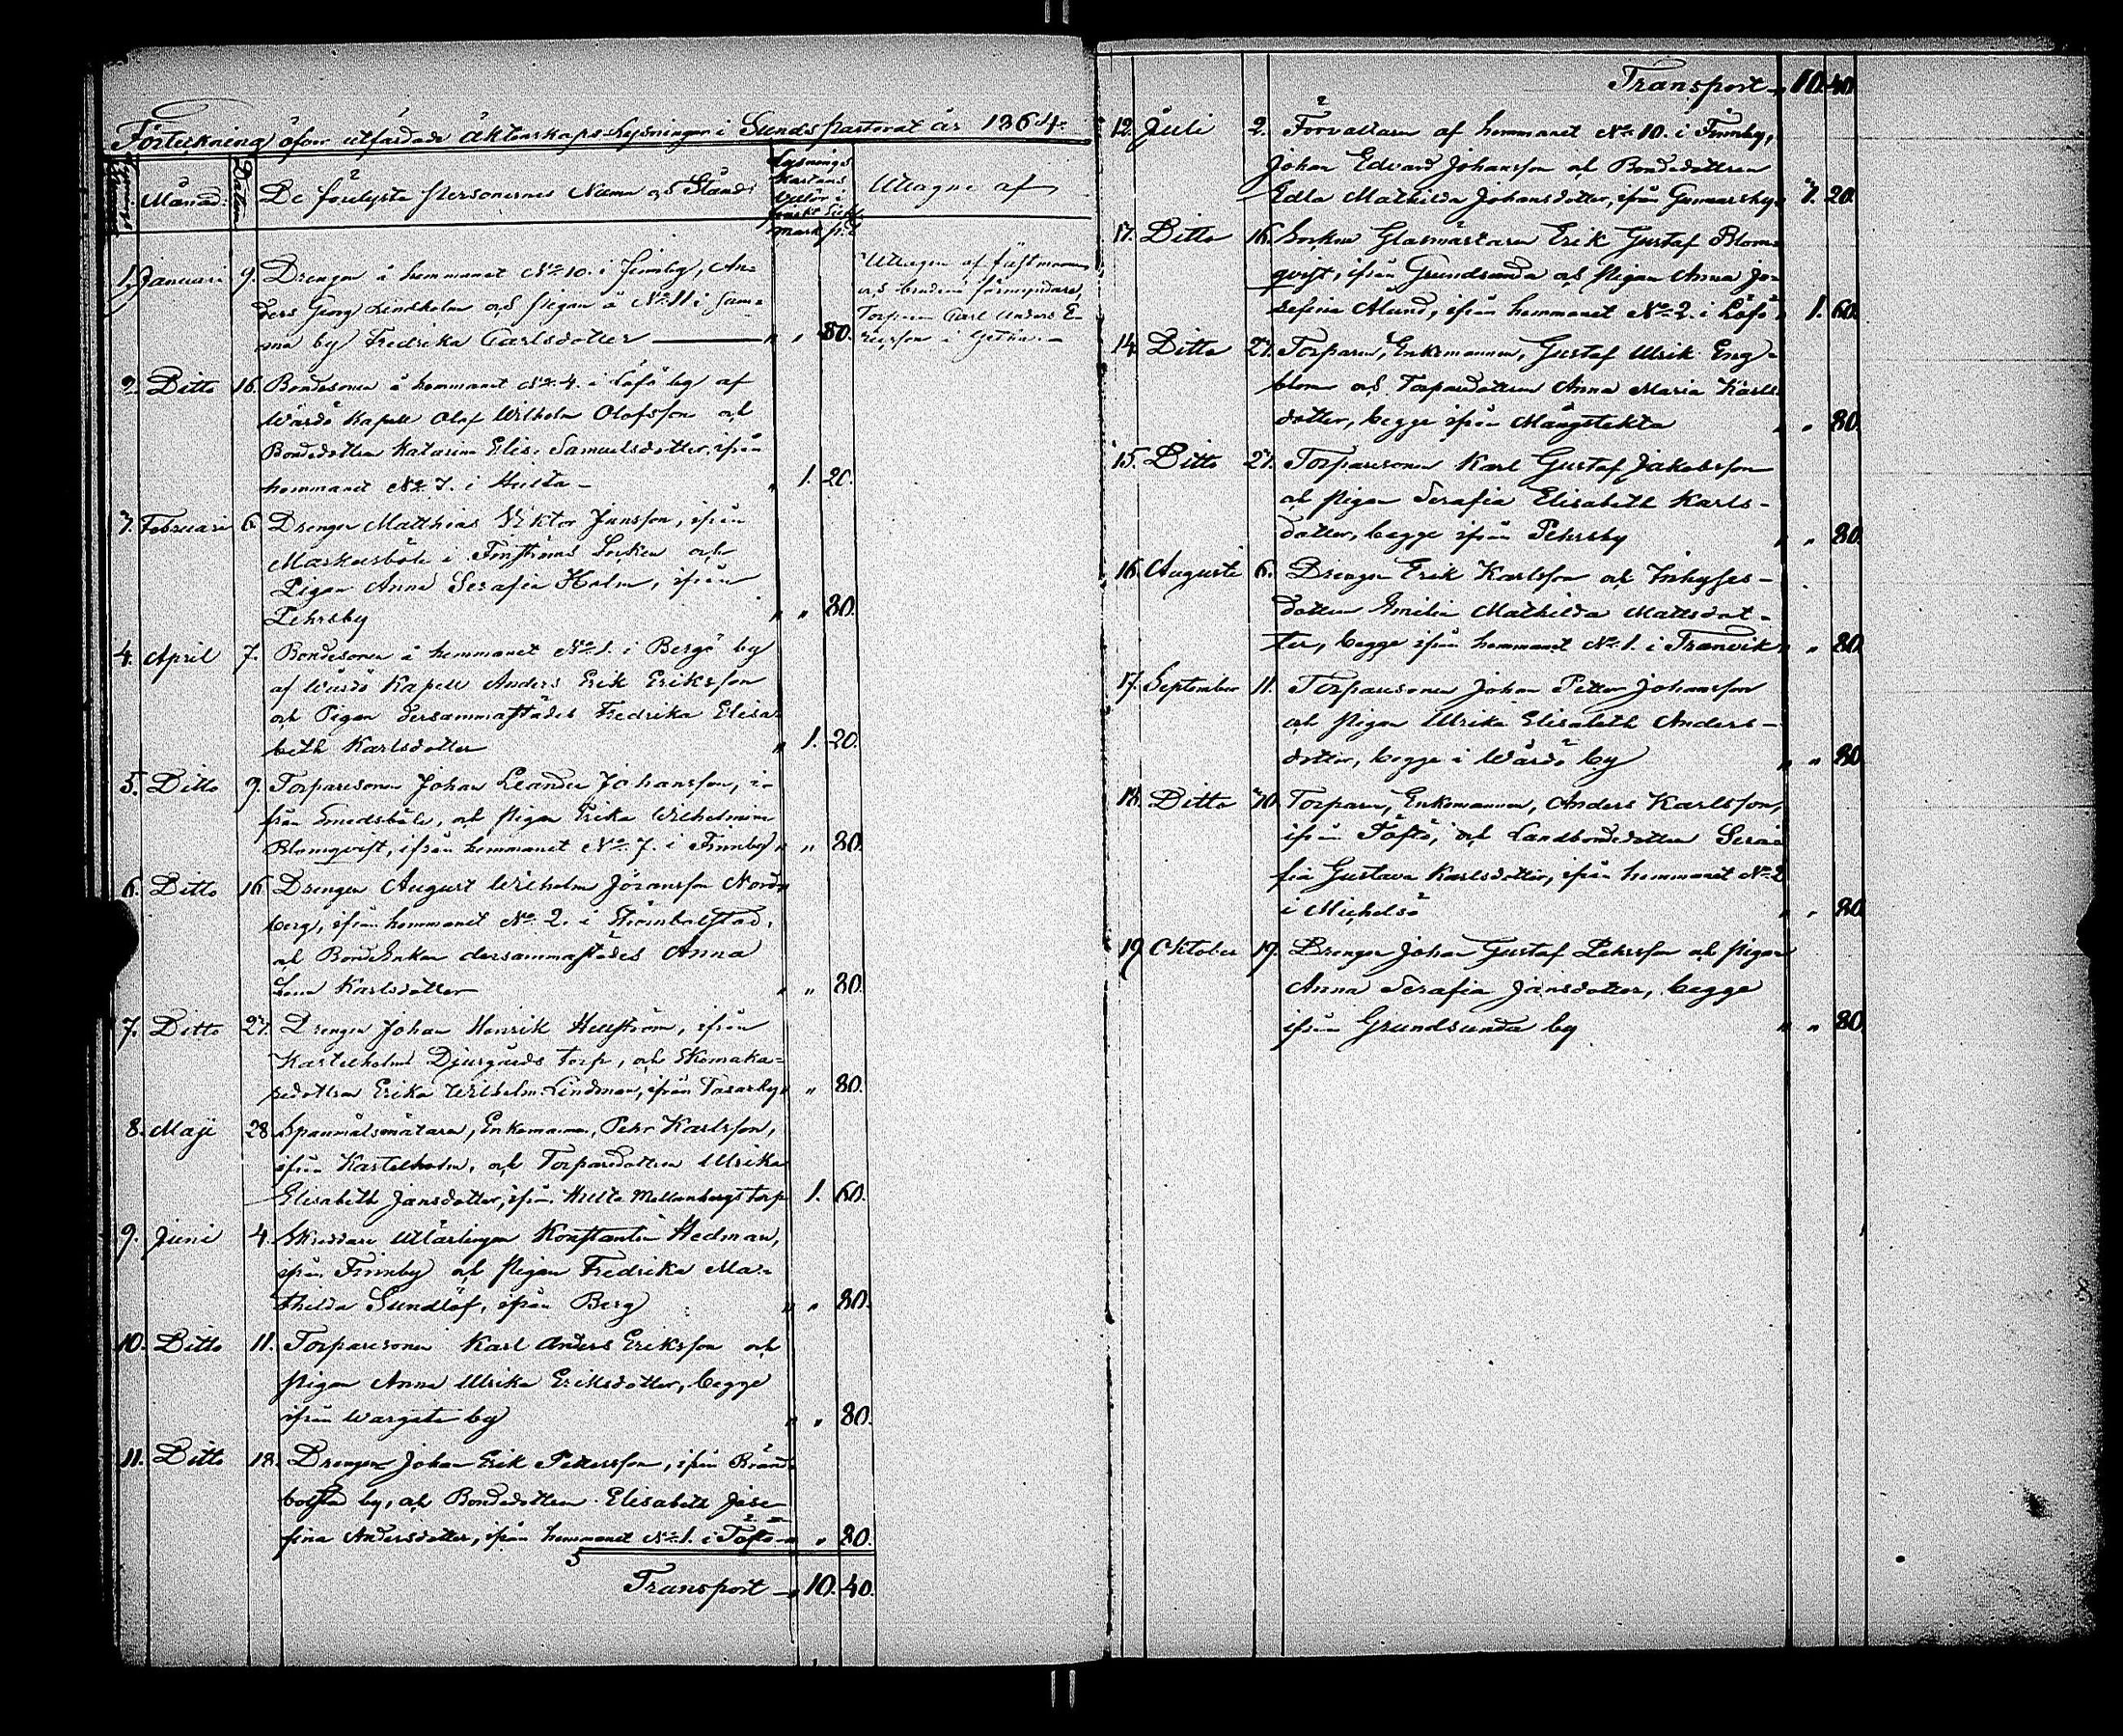 Förteckning öfver utfärdade Äktenskaps-Lysningar i Sunds Pastorat år 1864.
Månad. Datum De förelyste Personernes Namn och Stånd. Lysnings Kartans Uttagne af
mark p:i
1. Januari 9. Drengen å hemmanet No 10. i Finnby, An-
ders Georg Lindholm och pigan å No 11 i sam-
ma by Fredrika Carlsdotter " " 80.
Uttagen af fästmannen
och brudens förmyndare,
Torparen Carl Anders E-
ricsson i Getha.
2. Ditto 16. Bondesonen å hemmanet No 4. i Löfö by af
Wårdö Kapell Olof Wilhelm Olofsson och
Bondedottren Katarina Elis. Samuelsdotter, ifrån
hemmanet No 7. i Hulta " 1. 20.
3. Februari 6. Drengen Matthias Viktor Jansson, ifrån
Markusböle i Finströms Socken och
Pigan Anna Serafia Holm, ifrån
Pehrsby " " 80.
4. April 7. Bondesonen å hemmanet No 1. i Bergö by
af Wårdö Kapell Anders Erik Eriksson
och Pigan dersammastädes Fredrika Elisa-
beth Karlsdotter " 1. 20.
5. Ditto 9. Torparesonen Johan Leander Johansson, i-
från Smedsböle, och pigan Erika Wilhelmina
Blomqvist, ifrån hemmanet No 7. i Finnby " " 80.
6. Ditto 16 Drengen August Wilhelm Jöransson Nord-
berg, ifrån hemmanet No 2. i Strömbolstad,
och BondeEnkan dersammastädes Anna
Lena Karlsdotter " " 80.
7. Ditto 27. Drengen Johan Henrik Hellström, ifrån
Kastelholms Djurgårds torp, och Skomaka-
redottren Erika Wilhelm. Lindman, ifrån Tosarby " " 80.
8. Maji 28 Spanmålsmätaren, Enkemannen, Pehr Karlsson,
ifrån Kastelholm, och Torparedottren Ulrika
Elisabeth Jansdotter, ifrån Hulta Mellanbergs torp 1. 60.
9. Juni 4. Skräddare Utlärlingen Konstantin Hedman,
ifrån Finnby och pigan Fredrika Ma-
thilda Sundlöf, ifrån Berg " " 80.
10. Ditto 11. Torparesonen Karl Anders Eriksson och
pigan Anna Ulrika Eriksdotter, begge
ifrån Wargata by " " 80.
11. Ditto 18. Drengen Johan Erik Pettersson, ifrån Bränd-
bolstad by, och Bondedottren Elisabeth Jose-
fina Andersdotter, ifrån hemmanet No 1. i Töftö " " 80.
Transport " 10. 40.
Transport " 10. 40
12. Juli 2. Förvaltaren af hemmanet No 10. i Finnby,
Johan Edvard Johansson och Bondedottren
Edla Mathilda Johansdotter, ifrån Gunnarsby " 1. 20.
Ditto 16. Socken Glasmästaren Erik Gustaf Blom-
qvist, ifrån Grundsunda och pigan Anna Jo-
sefina Ålund, ifrån hemmanet No 2. i Löfö " 1. 60.
14. Ditto 27. Torparen, Enkemannen, Gustaf Ulrik Eng-
blom och Torparedottren Anna Maria Karls-
dotter, begge ifrån Mångstekta " " 80.
15. Ditto 27. Torparesonen Karl Gustaf Jakobsson
och pigan Serafia Elisabeth Karls-
dotter, begge ifrån Pehrsby " " 80.
16. Augusti 6. Drengen Erik Karlsson och Inhyses-
dottren Emilia Mathilda Mattsdot-
ter, begge ifrån hemmanet No 1. i Tranvik " " 80.
17. September 11. Torparesonen Johan Petter Johansson
och pigan Ulrika Elisabeth Anders-
dotter, begge i Wårdö by " " 80
18. Ditto 30. Torparen, Enkemannen, Anders Karlsson,
ifrån Töftö, och Landbondedottren Sera-
fia Gustava Karlsdotter, ifrån hemmanet No 2
i Michelsö " " 80
19. Oktober 19. Drengen Johan Gustaf Pehrsson och pigan
Anna Serafia Jansdotter, begge
ifrån Grundsunda by " " 80.